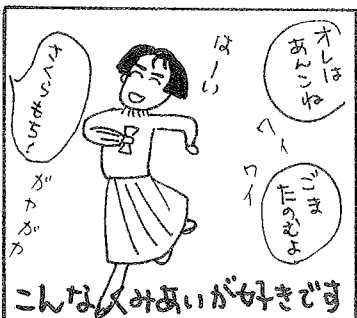 オレは
あんこね
ワイ
ワイ
ごま
たのむよ
はーい
さくらもち〜
ガヤガヤ
こんなくみあいが好きです